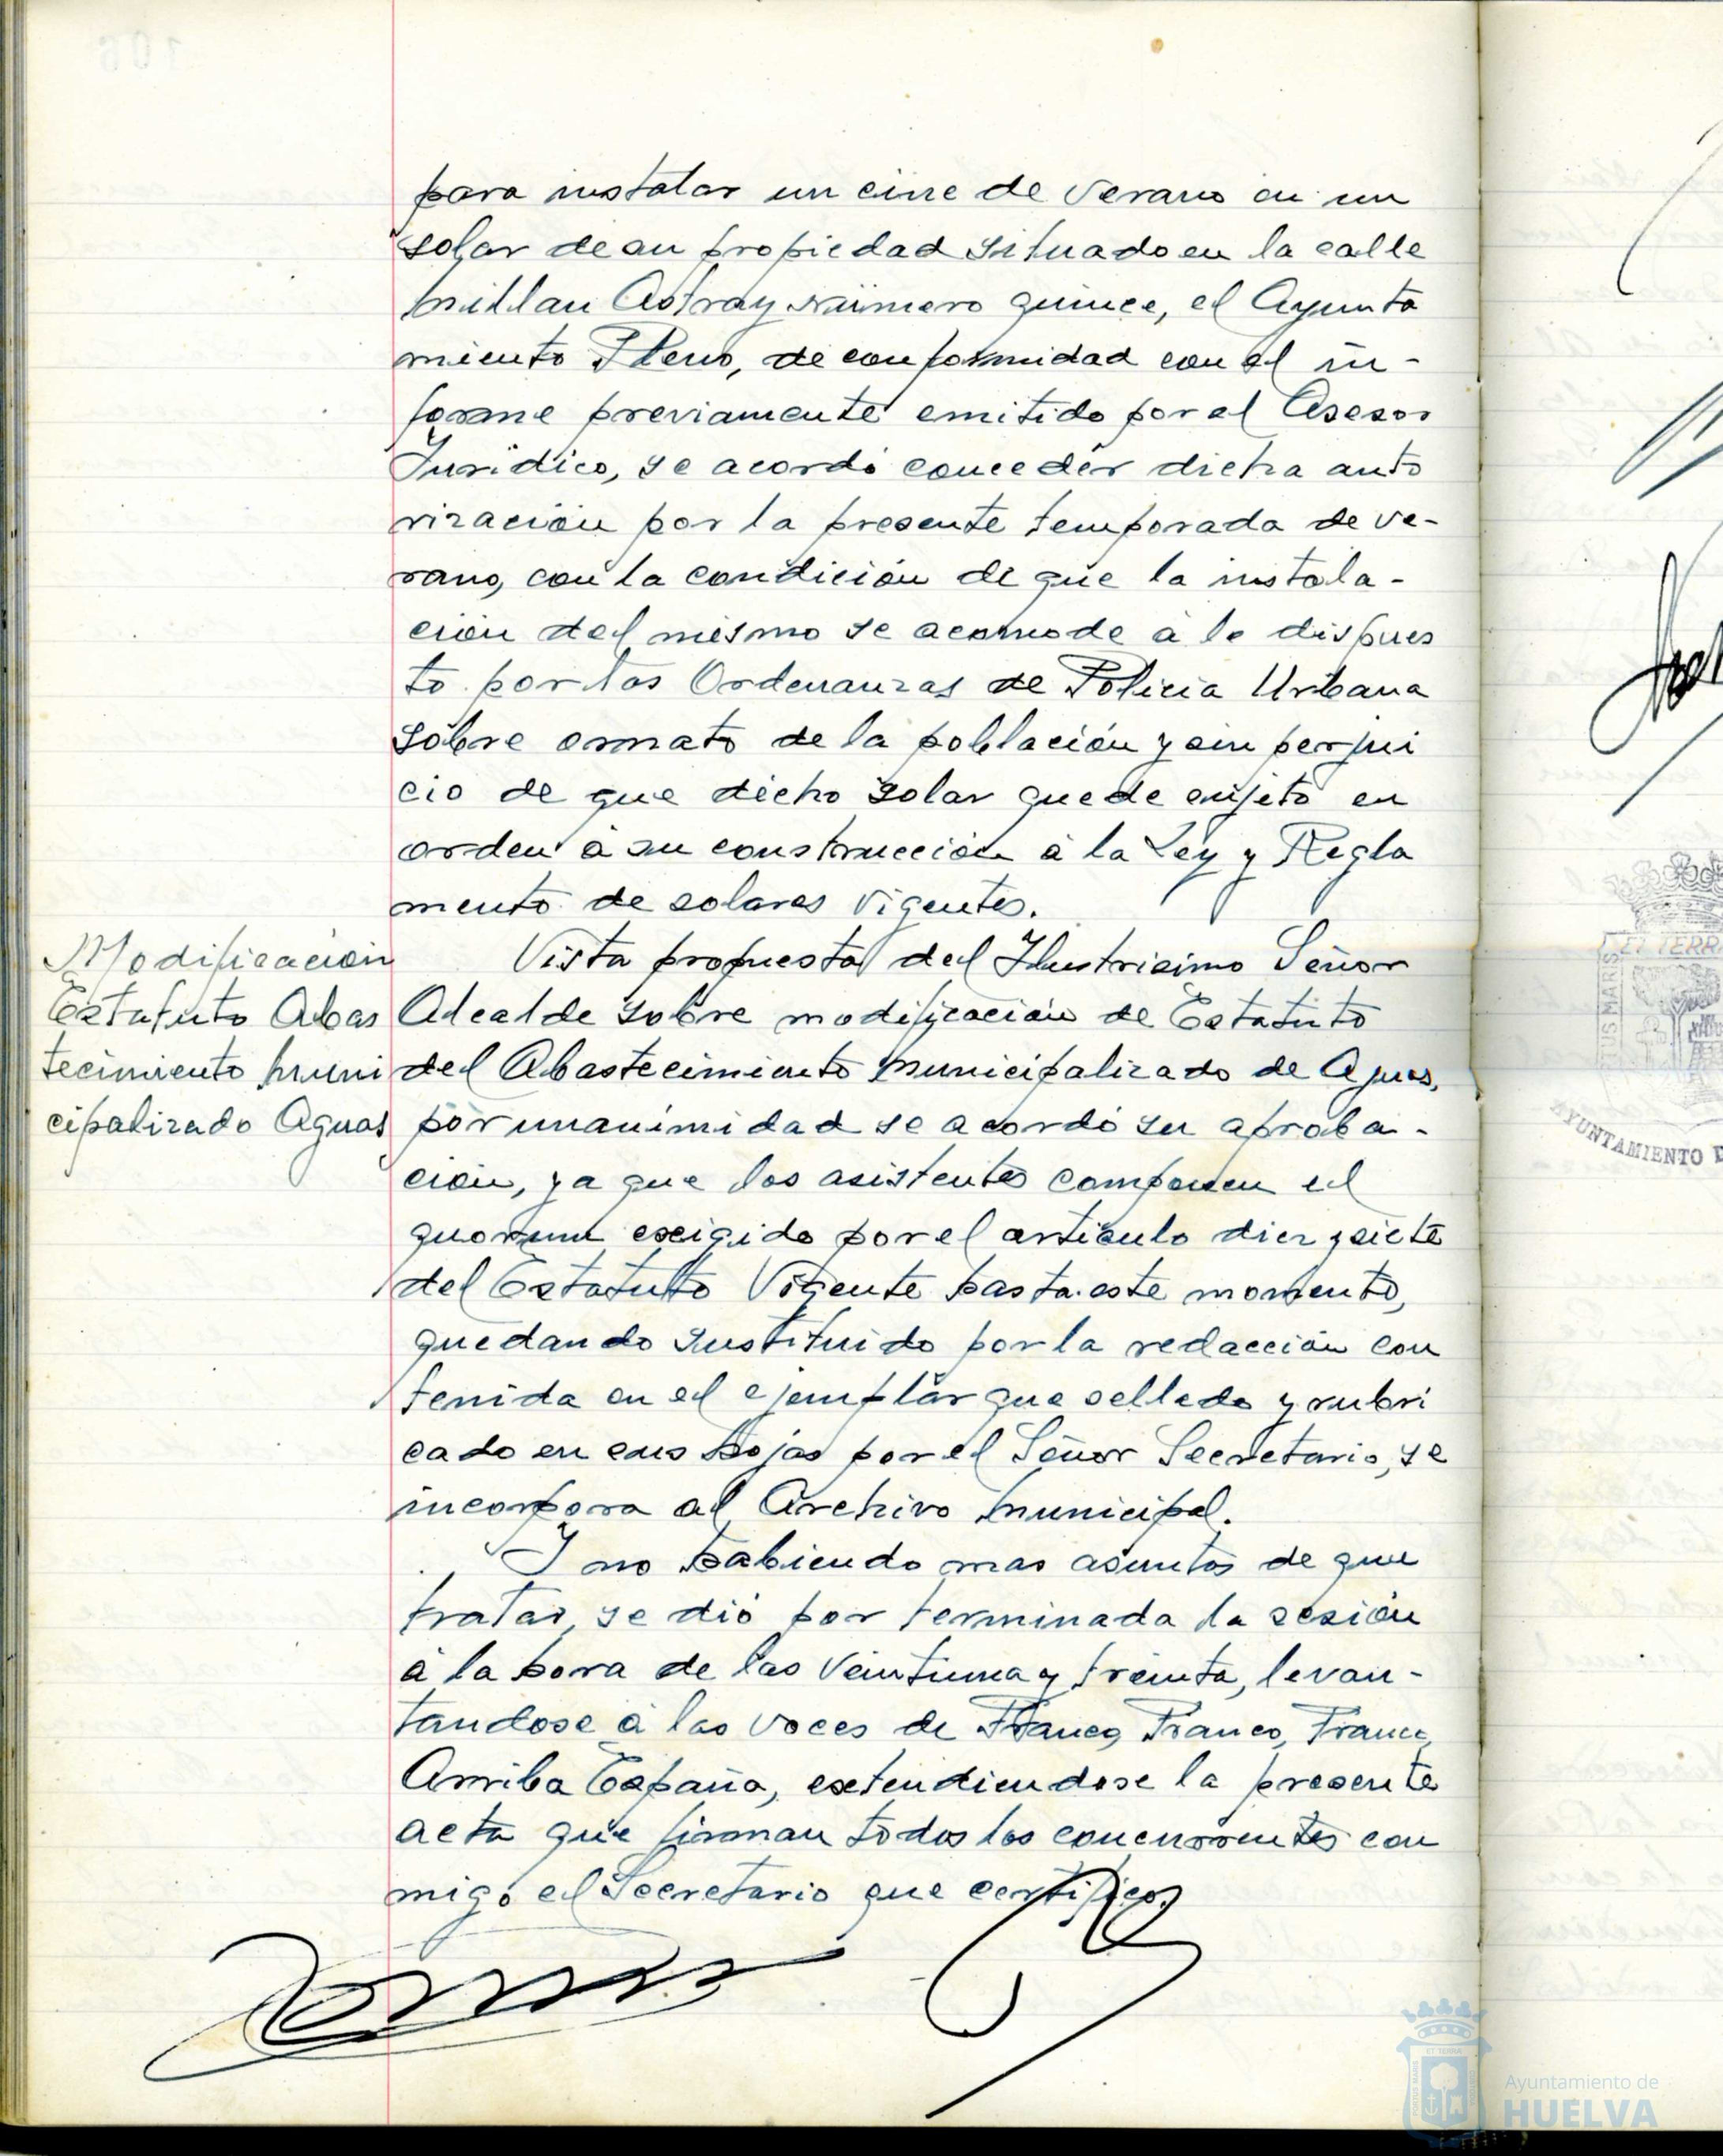 para instalar un cine de verano en un
solar de su propiedad situado en la calle
Millan Astray número quince, el Ayunta
miento Pleno, de conformidad con el in-
forme previamente emitido por el Asesor
Juridico, se acordó conceder dicha auto
rización por la presente temporada de ve-
rano, con la condición de que la instala-
ción del mismo se acomode a lo dispues
to por las Ordenanzas de Policia Urbana
sobre ornato de la población y sin perjui
cio de que dicho solar quede sujeto en
orden a su construcción a la Ley y Regla
mento de solares vigentes.
Modificación
Estatuto Abas
tecimiento Muni
cipalizado Aguas
Vista propuesta del Ilustrisimo Señor
Alcalde sobre modificación de Estatuto
del Abastecimiento Municipalizado de Aguas,
por unanimidad se acordó su aproba-
ción, ya que los asistentes componen el
quorum exigido por el articulo diez y siete
del Estatuto Vigente hasta este momento,
quedando sustituido por la redacción con
tenida en el ejemplar que sellado y rubri
cado en sus hojas por el Señor Secretario, se
incorpora al Archivo Municipal.
Y no habiendo mas asuntos de que
tratar, se dió por terminada la sesión
a la hora de las Veintiuna y treinta, levan-
tandose a las voces de Franco, Franco, Franco,
Arriba España, extendiendose la presente
acta que firman todos los concurrentes con
migo el Secretario que certifico.
ET TERRA
AYUNTAMIENTO
Ayuntamiento de
HUELVA